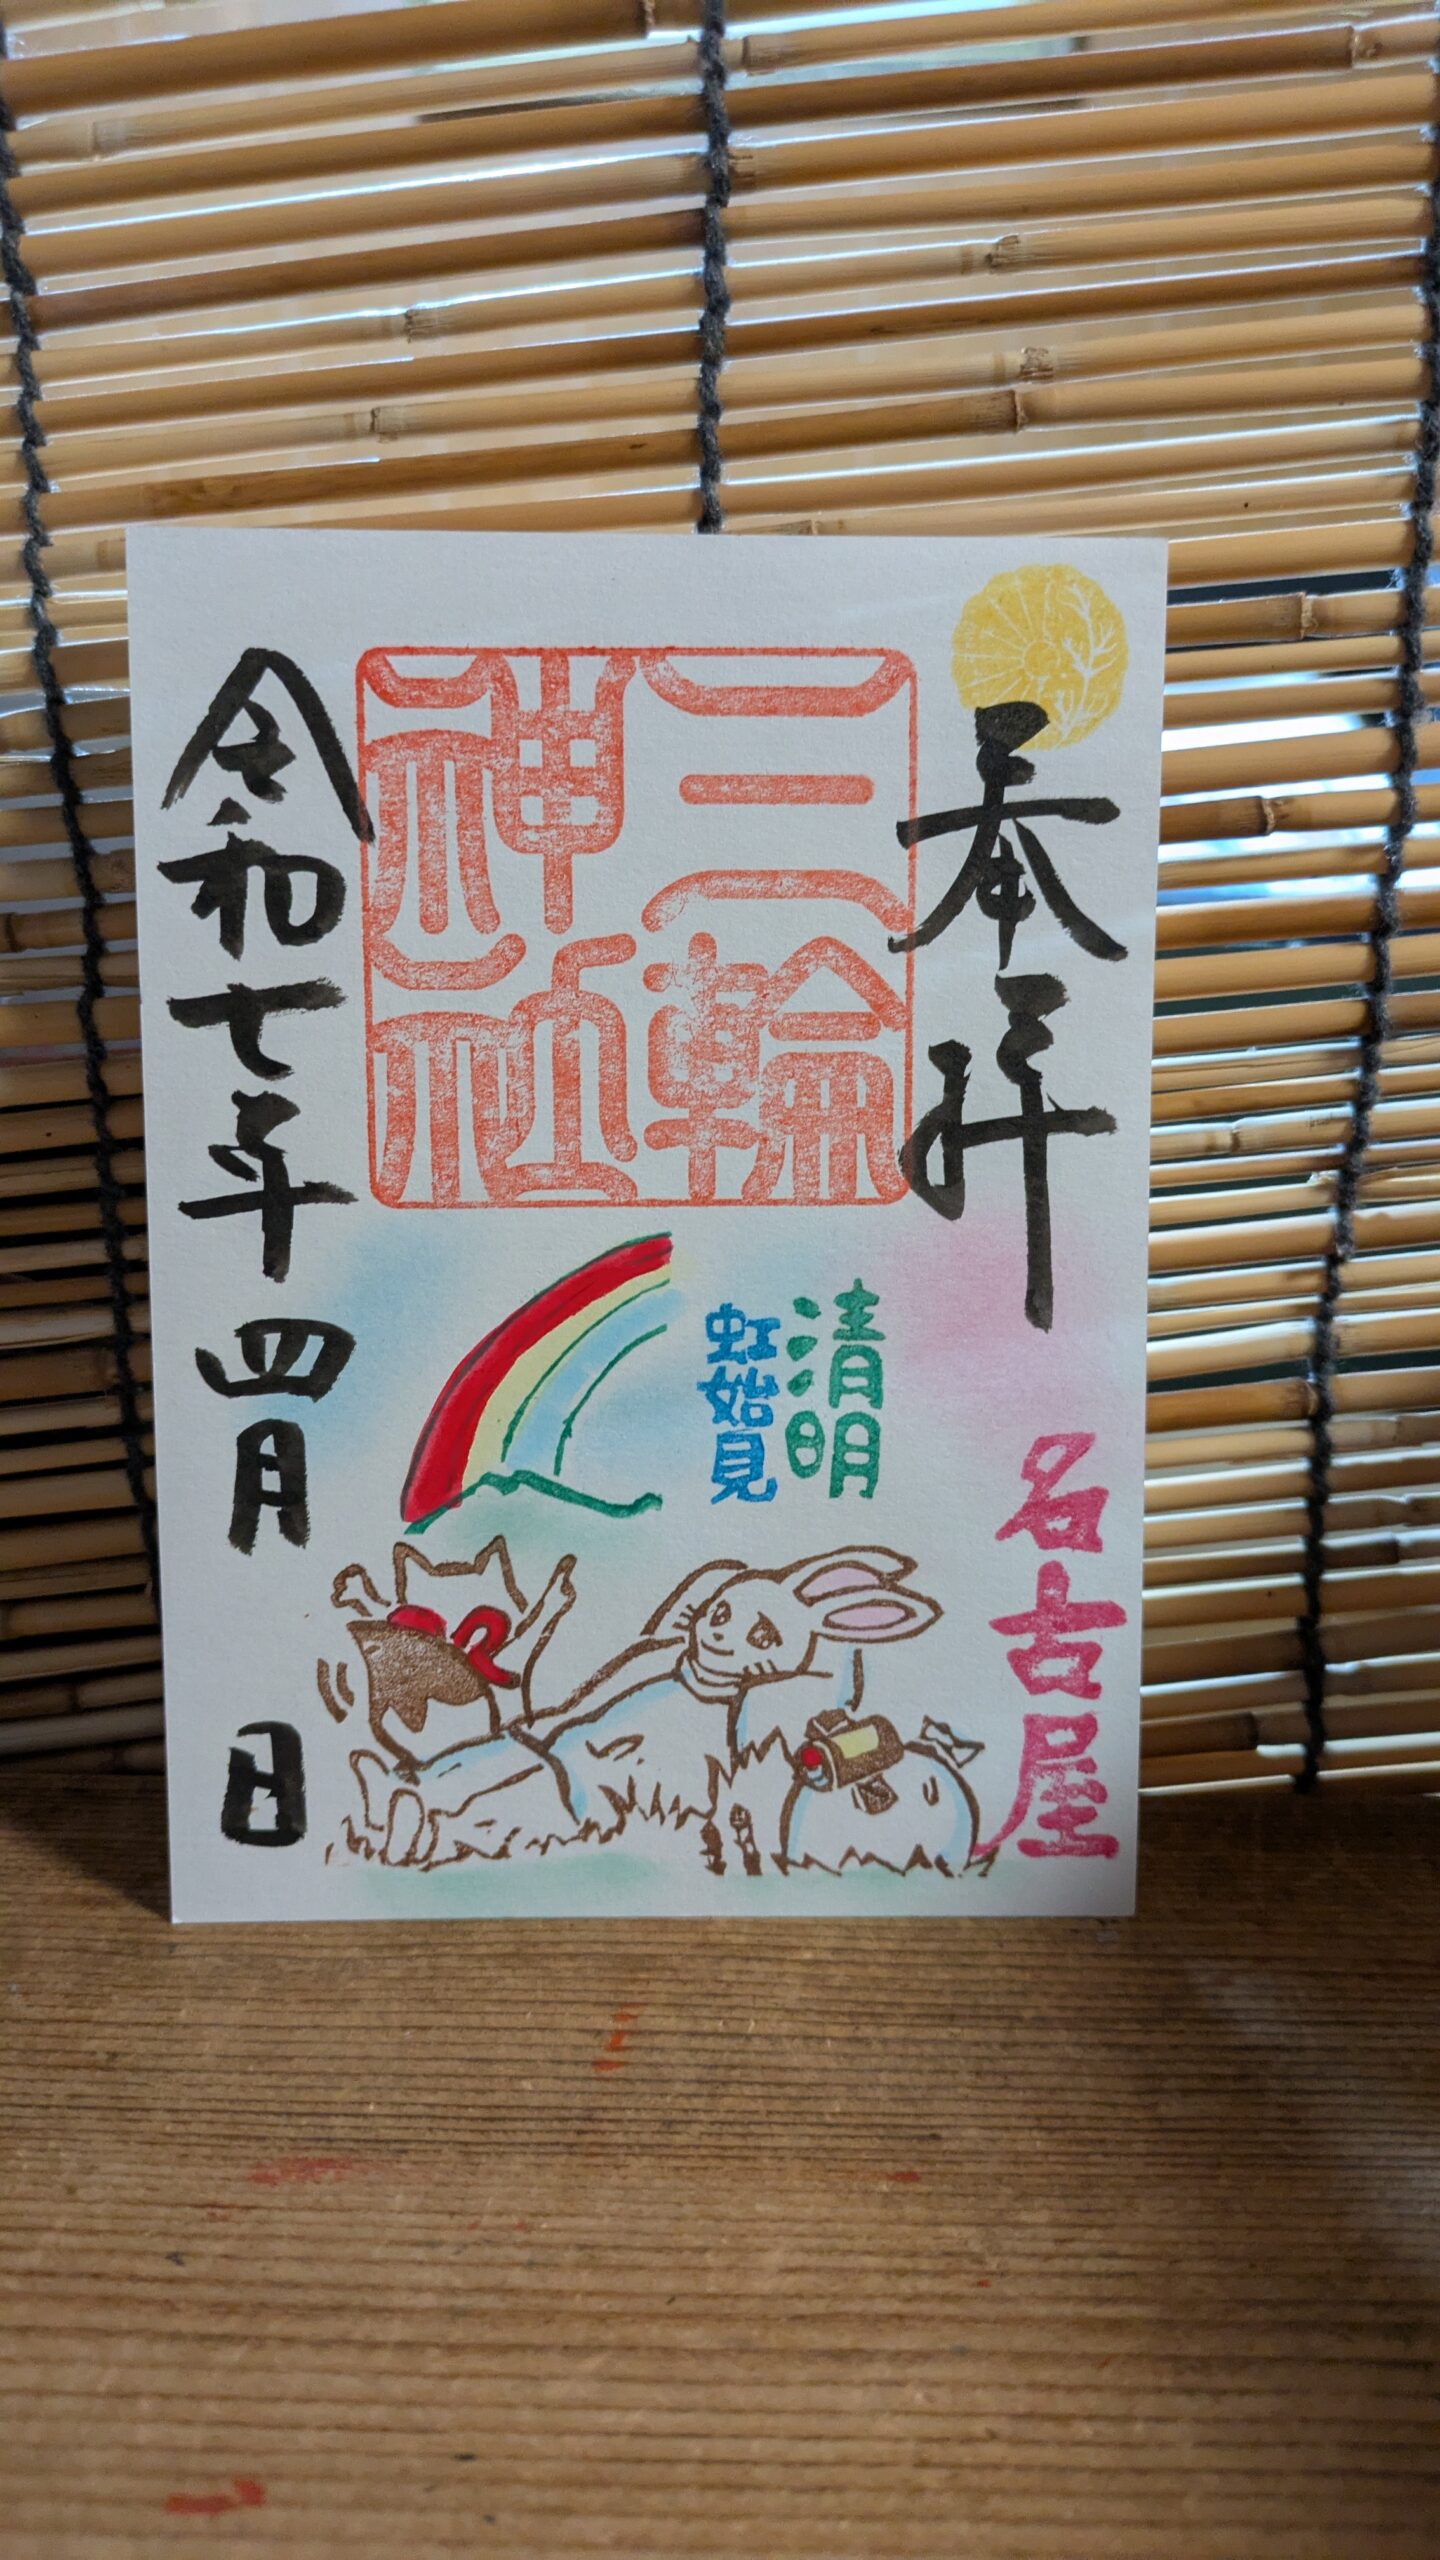 奉拝
名古屋
三輪
神社
清明
虹始見
令和七年四月 日